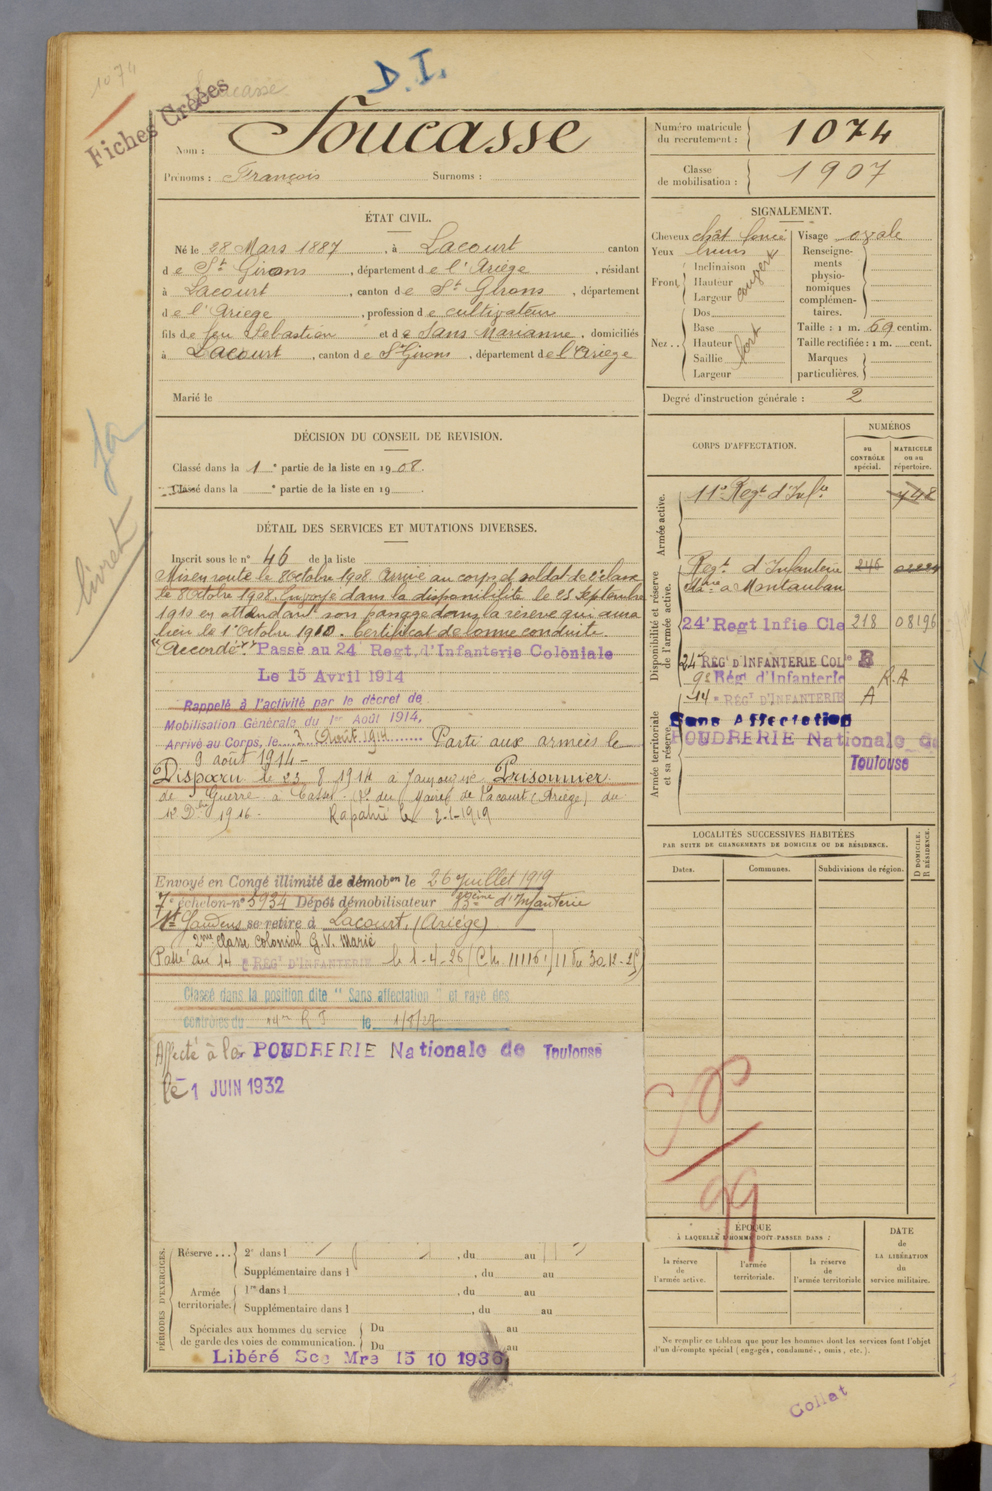 1074
Soucasse
D.I.
Fiches Créées
Nom : Soucasse
Prénoms : François Surnoms :
Numéro matricule du recrutement : 1074
Classe de mobilisation : 1907
ÉTAT CIVIL.
Né le 28 Mars 1887, à Lacourt canton
de St Girons, département de l'Ariège, résidant
à Lacourt, canton de St Girons, département
de l'Ariege, profession de cultivateur
fils de feu Sébastien et de Sans Marianne, domiciliés
à Lacourt, canton de St Girons, département de l'Ariège
Marié le
SIGNALEMENT.
Cheveux chât foncé Visage ovale
Yeux bruns
Front Inclinaison
Hauteur
Largeur
Nez .. Dos
Base
Hauteur
Saillie
Largeur
Renseignements physionomiques complémentaires.
Taille : 1 m. 69 centim.
Taille rectifiée : 1 m. cent.
Marques particulières.
Degré d'instruction générale : 2
DÉCISION DU CONSEIL DE REVISION.
Classé dans la 1e partie de la liste en 1908.
Classé dans la e partie de la liste en 19 .
livret
DÉTAIL DES SERVICES ET MUTATIONS DIVERSES.
Inscrit sous le n° 46 de la liste
Mis en route le 8 Octobre 1908. Arrivé au corps et soldat de 2e classe
le 8 Octobre 1908. Envoyé dans la disponibilité le 25 Septembre
1910 en attendant son passage dans la réserve qui aura
lieu le 1er Octobre 1910. Certificat de bonne conduite
"Accordé" Passé au 24e Regt d'Infanterie Coloniale
Le 15 Avril 1914
Rappelé à l'activité par le décret de
Mobilisation Générale du 1er Août 1914.
Arrivé au Corps, le 3 Août 1914 Parti aux armées le
9 août 1914 -
Disparu le 23 8 1914 à Prisonnier
de Guerre à Cassel du Maire de Lacourt (Ariège) du
12 Dbre 1916 - Rapatrié le 2-1-1919
Envoyé en Congé illimité de démobon le 26 Juillet 1919
7e échelon n° 5934 Dépôt démobilisateur d'Infanterie
St Gaudens se retire à Lacourt, (Ariège)
2me classe colonial G.V. Marié
Passé au 14e RÉGt D'INFANTERIE le 1-4-26
Classé dans la position dite "Sans affectation" et rayé des
contrôles du 14me R I le
Affecté à la POUDRERIE Nationale de Toulouse
le 1 JUIN 1932
CORPS D'AFFECTATION.
NUMÉROS
au CONTRÔLE spécial.
MATRICULE ou au répertoire.
Armée active.
11e Regt d'Infie 748
Disponibilité et réserve de l'armée active.
Regt d'Infanterie
à Montauban
24e Regt Infie Cle 218 08196
24e RÉGt D'INFANTERIE COLle R
9e Régt d'Infanterie R.A
14e RÉGt D'INFANTERIE A
Armée territoriale et sa réserve.
Sans Affectation
POUDRERIE Nationale de
Toulouse
LOCALITÉS SUCCESSIVES HABITÉES
PAR SUITE DE CHANGEMENTS DE DOMICILE OU DE RÉSIDENCE.
Dates. Communes. Subdivisions de région.
D DOMICILE. R RÉSIDENCE.
99
ÉPOQUE
À LAQUELLE L'HOMME DOIT PASSER DANS :
la réserve de l'armée active.
l'armée territoriale.
la réserve de l'armée territoriale
DATE de LA LIBÉRATION du service militaire.
Ne remplir ce tableau que pour les hommes dont les services font l'objet
d'un décompte spécial (engagés, condamnés, omis, etc.).
PÉRIODES D'EXERCICES.
Réserve ... 2e dans l , du au
Supplémentaire dans l , du au
Armée territoriale. 1re dans l , du au
Supplémentaire dans l , du au
Spéciales aux hommes du service Du au
de garde des voies de communication. Du au
Libéré Sce Mre 15 10 1936
Collat